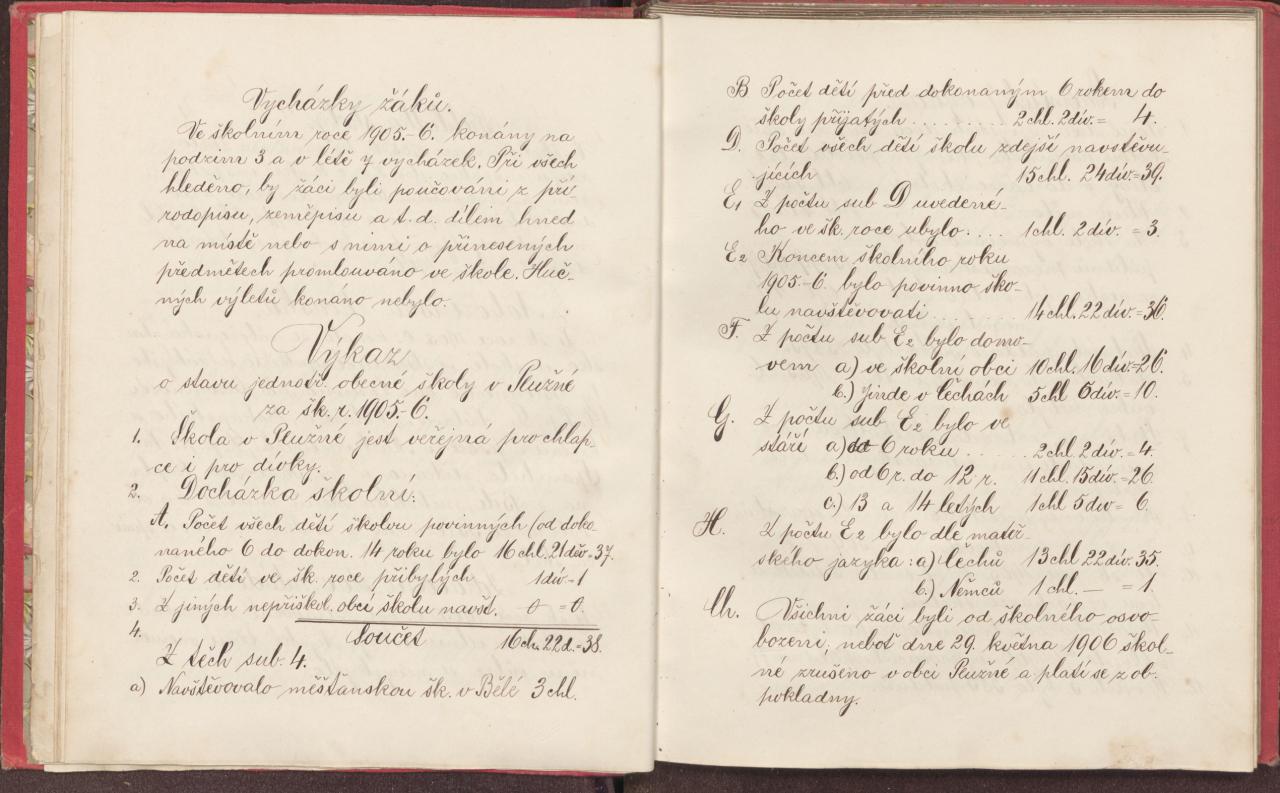 Vycházky žáků.
Ve školním roce 1905.-6. konány na
podzim 3 a v létě 7 vycházek. Při všech
hleděno, by žáci byli poučováni z pří-
rodopisu, zeměpisu a t. d. dílem hned
na místě nebo s nimi o přinesených
předmětech promlouváno ve škole. Huč-
ných výletů konáno nebylo.
Výkaz
o stavu jednotř. obecné školy v Plužné
za šk. r. 1905.-6.
1. Škola v Plužné jest veřejná pro chlap-
ce i pro dívky.
2. Docházka školní:
A, Počet všech dětí školou povinných (od doko-
naného 6 do dokon. 14 roku bylo 16 chl. 21 děv = 37.
2. Počet dětí ve šk. roce přibylých 1 dív = 1
3. Z jiných nepřiškol. obcí školu navšt. 0 = 0.
4. Součet 16 ch. 22 d. = 38.
Z těch sub. 4.
a) Navštěvovalo měšťanskou šk. v Bělé 3 chl.
B Počet dětí před dokonaným 6 rokem do
školy přijatých ........ 2 chl. 2 dív. = 4.
D. Počet všech dětí školu zdejší navštěvu-
jících 15 chl. 24 dív. = 39.
E1 Z počtu sub D uvedené-
ho ve šk. roce ubylo: .... 1 chl. 2 dív. = 3.
E2 Koncem školního roku
1905.-6. bylo povinno ško-
lu navštěvovati ........ 14 chl. 22 dív. = 36.
F. Z počtu sub E2 bylo domo-
vem a) ve školní obci 10 chl. 16 dív. = 26.
b.) jinde v Čechách 5 chl 6 dív. = 10.
G. Z počtu sub E2 bylo ve
stáří a) od 6 roku ...... 2 chl 2 dív. = 4.
b.) od 6 r. do 12 r. 11 chl. 15 dív. = 26.
c.) 13 a 14 letých 1 chl 5 dív = 6.
H. Z počtu E2 bylo dle mateř-
ského jazyka: a) Čechů 13 chl 22 dív. 35.
b.) Němců 1 chl. — = 1.
Ch. Všichni žáci byli od školného osvo-
bozeni, neboť dne 29. května 1906 škol-
né zrušeno v obci Plužné a platí se z ob.
pokladny.